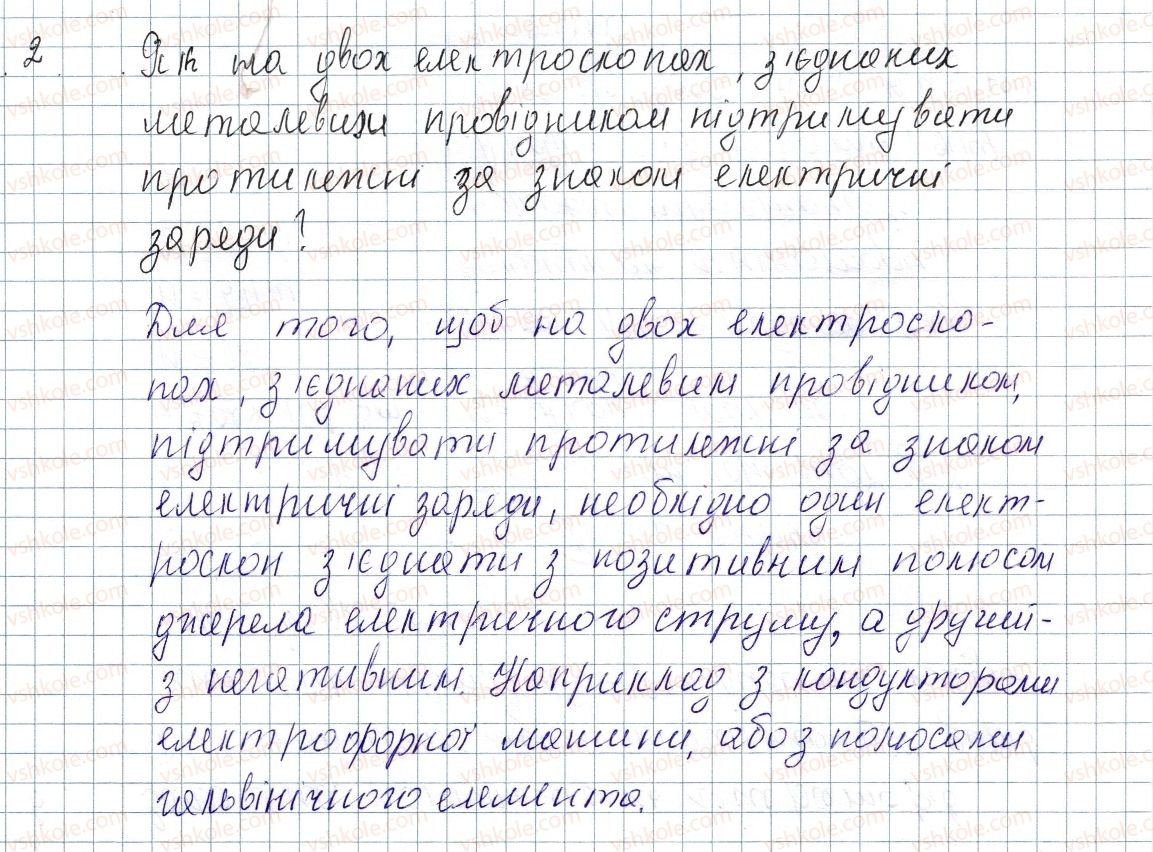 2. Як на двох електроскопах, з'єднаних
металевим провідником підтримувати
протилежні за знаком електричні
заряди?
Для того, щоб на двох електроско-
пах, з'єднаних металевим провідником,
підтримувати протилежні за знаком
електричні заряди, необхідно один елект-
роскоп з'єднати з позитивним полюсом
джерела електричного струму, а другий-
з негативним. Наприклад з кондукторами
електрофорної машини, або з полюсами
гальвінічного елемента.